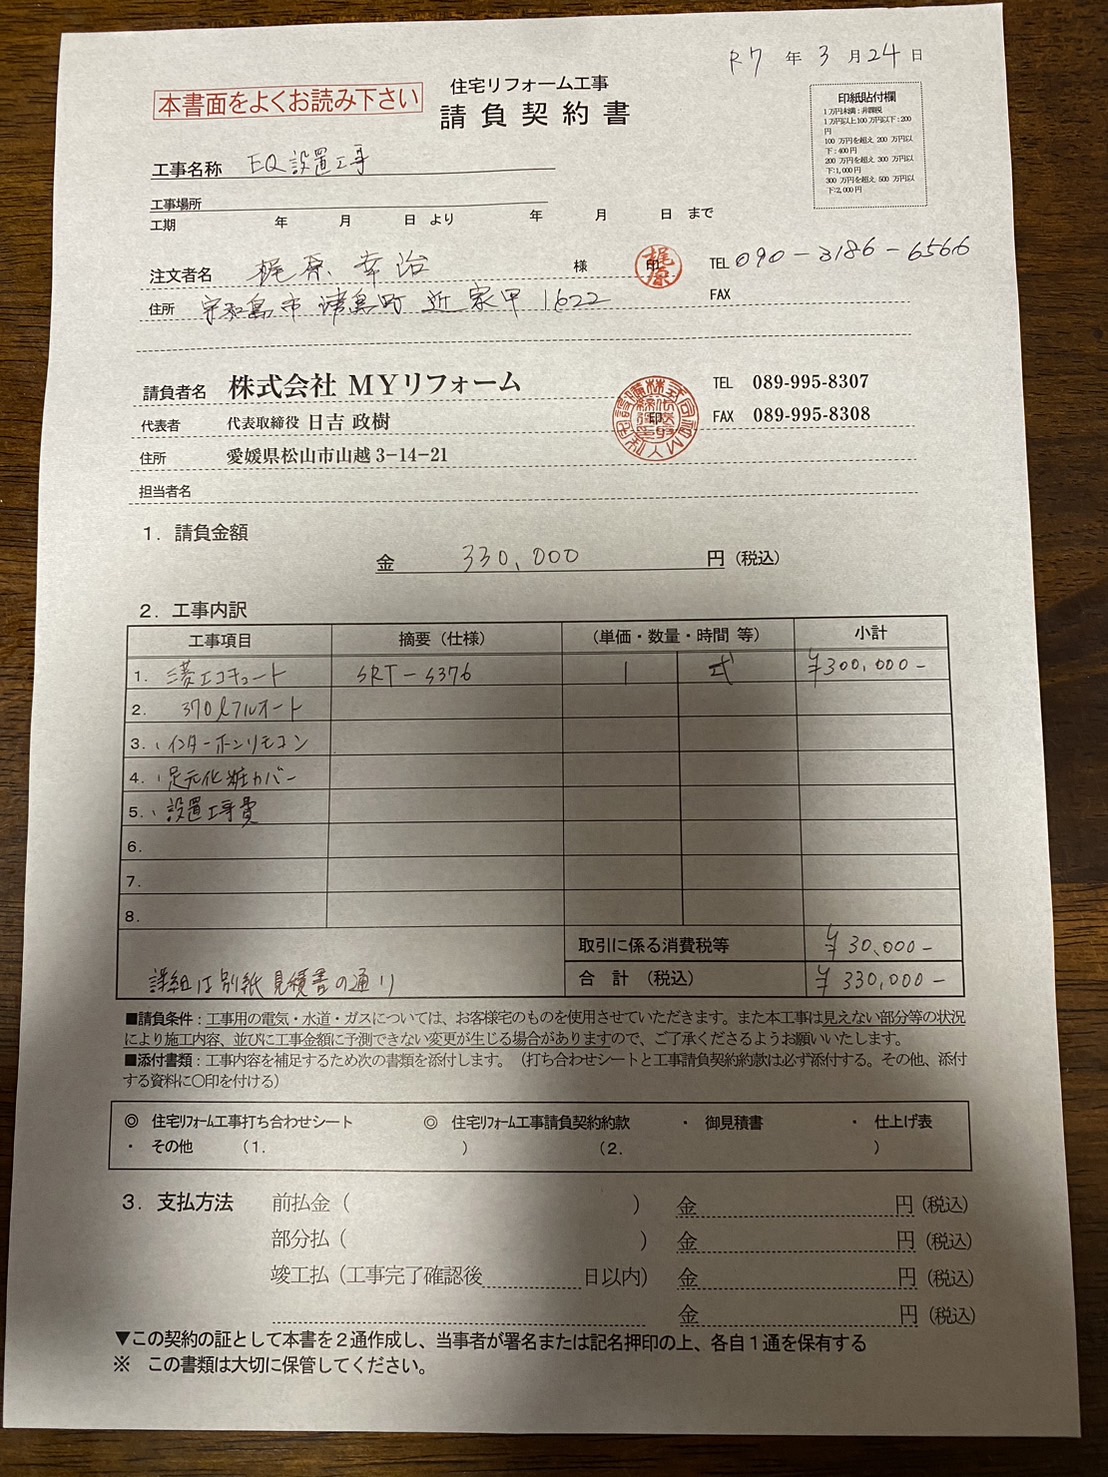 R7 年 3 月 24 日
本書面をよくお読み下さい
住宅リフォーム工事
請負契約書
印紙貼付欄
1万円未満：非課税
1万円以上100万円以下：200
円
100 万円を超え 200 万円以
下：400円
200 万円を超え 300 万円以
下:1,000円
300 万円を超え 500 万円以
下:2,000円
工事名称 EQ設置工事
工事場所
工期 年 月 日 より 年 月 日 まで
注文者名 梶原 幸治 様 印 梶原 TEL 090-3186-6566
住所 宇和島市津島町近家甲1622 FAX
請負者名 株式会社 MYリフォーム TEL 089-995-8307
代表者 代表取締役 日吉 政樹 印 FAX 089-995-8308
住所 愛媛県松山市山越 3-14-21
担当者名
1．請負金額
金 330,000 円（税込）
2．工事内訳
工事項目 摘要（仕様） （単価・数量・時間 等） 小計
1. 三菱エコキュート SRT-S376 1 式 ¥300,000-
2. 370ℓフルオート
3. ・インターホンリモコン
4. ・足元化粧カバー
5. ・設置工事費
6.
7.
8.
取引に係る消費税等 ¥30,000-
詳細は別紙見積書の通り 合 計 （税込） ¥330,000-
■請負条件：工事用の電気・水道・ガスについては、お客様宅のものを使用させていただきます。また本工事は見えない部分等の状況
により施工内容、並びに工事金額に予測できない変更が生じる場合がありますので、ご了承くださるようお願いいたします。
■添付書類：工事内容を補足するため次の書類を添付します。（打ち合わせシートと工事請負契約約款は必ず添付する。その他、添付
する資料に〇印を付ける）
◎ 住宅リフォーム工事打ち合わせシート ◎ 住宅リフォーム工事請負契約約款 ・ 御見積書 ・ 仕上げ表
・ その他 （1. ） （2. ）
3．支払方法 前払金（ ） 金 円（税込）
部分払（ ） 金 円（税込）
竣工払（工事完了確認後 日以内） 金 円（税込）
金 円（税込）
▼この契約の証として本書を２通作成し、当事者が署名または記名押印の上、各自１通を保有する
※ この書類は大切に保管してください。